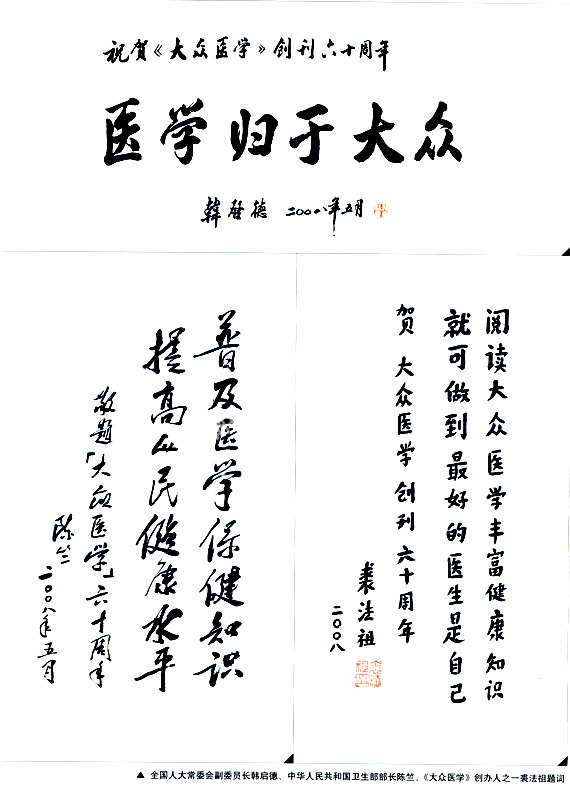 祝贺《大众医学》创刊六十周年
医学归于大众
韩启德 二〇〇八年五月
普及医学保健知识
提高人民健康水平
敬题「大众医学」六十周年
陈竺
二〇〇八年五月
阅读大众医学丰富健康知识
就可做到最好的医生是自己
贺 大众医学 创刊 六十周年
裘法祖
二〇〇八
▲ 全国人大常委会副委员长韩启德、中华人民共和国卫生部部长陈竺、《大众医学》创办人之一裘法祖题词